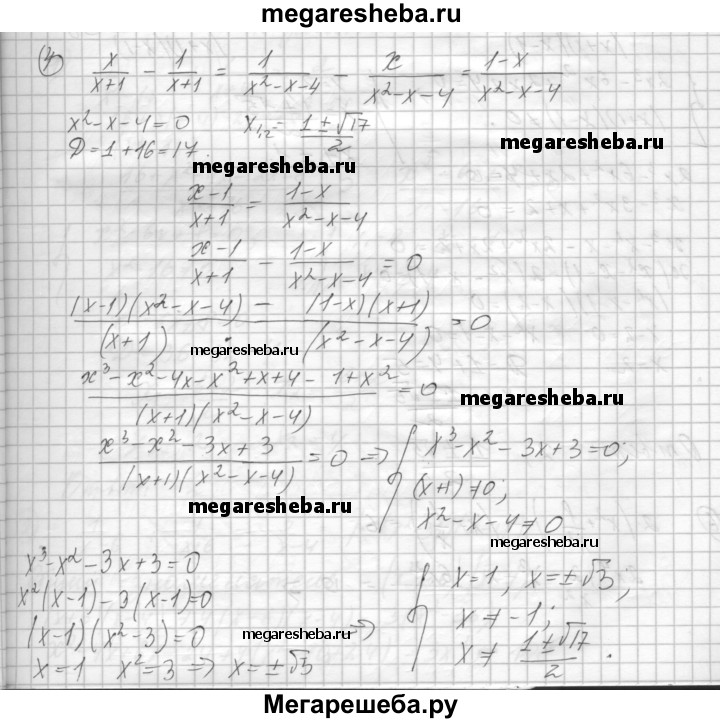 megaresheba.ru
4) x/(x+1) - 1/(x+1) = 1/(x²-x-4) - x/(x²-x-4) = (1-x)/(x²-x-4)
x²-x-4=0 x₁,₂ = (1±√17)/2
D=1+16=17.
megaresheba.ru
megaresheba.ru
(x-1)/(x+1) = (1-x)/(x²-x-4)
(x-1)/(x+1) - (1-x)/(x²-x-4) = 0
((x-1)(x²-x-4) - (1-x)(x+1))/((x+1)·(x²-x-4)) = 0
megaresheba.ru
(x³-x²-4x-x²+x+4-1+x²)/((x+1)(x²-x-4)) = 0
megaresheba.ru
(x³-x²-3x+3)/((x+1)(x²-x-4)) = 0 => { x³-x²-3x+3=0;
(x+1)≠0;
x²-x-4≠0
megaresheba.ru
megaresheba.ru
x³-x²-3x+3=0
x²(x-1)-3(x-1)=0
(x-1)(x²-3)=0
megaresheba.ru
x=1 x²=3 => x=±√3
=> { x=1, x=±√3;
x≠-1;
x≠(1±√17)/2.
Мегарешеба.ру